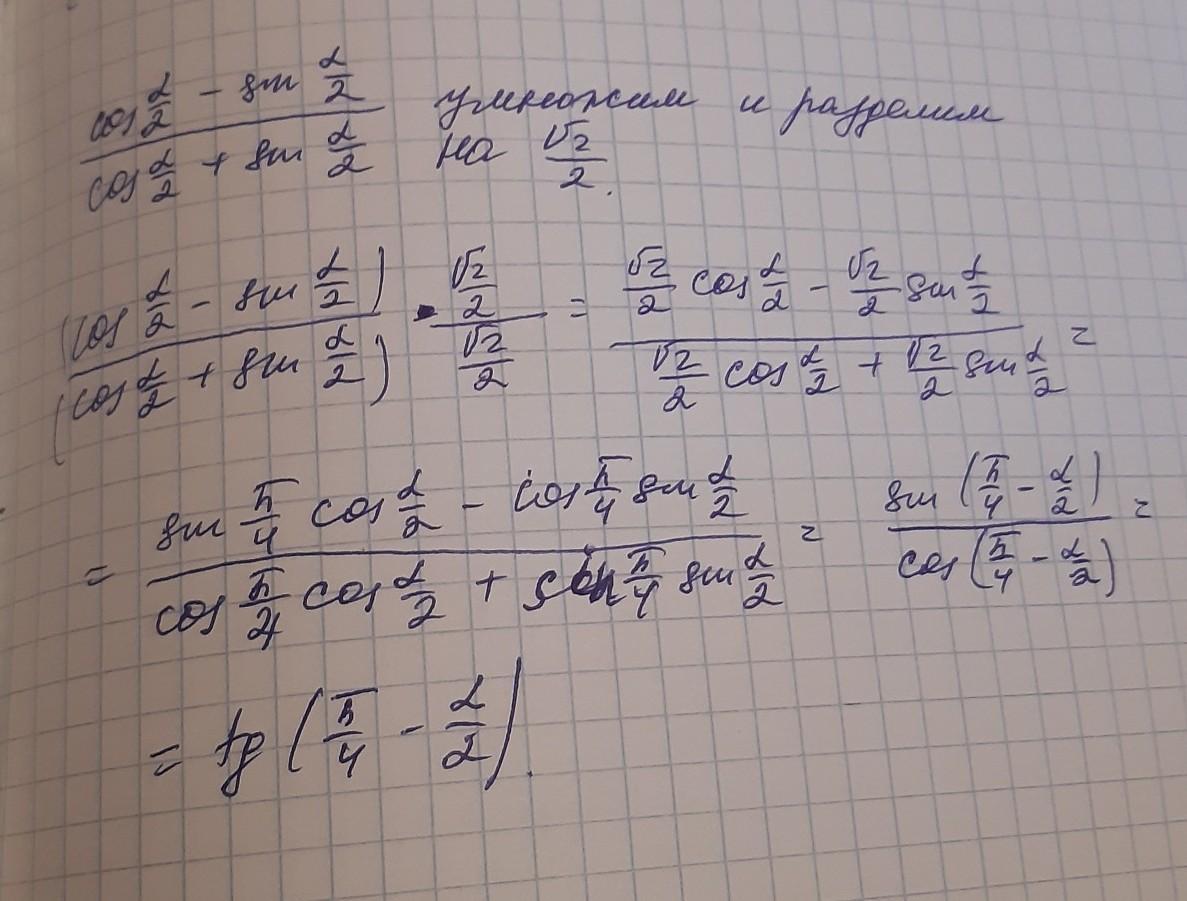 (cos α/2 - sin α/2)/(cos α/2 + sin α/2) умножим и разделим
на √2/2.
(cos α/2 - sin α/2)/(cos α/2 + sin α/2) · (√2/2)/(√2/2) = (√2/2 cos α/2 - √2/2 sin α/2)/(√2/2 cos α/2 + √2/2 sin α/2) =
= (sin π/4 cos α/2 - cos π/4 sin α/2)/(cos π/4 cos α/2 + sin π/4 sin α/2) = sin (π/4 - α/2)/cos (π/4 - α/2) =
= tg (π/4 - α/2).